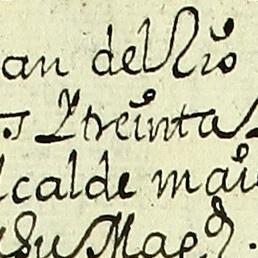 an del Rio
s Y treinta
lcalde maio
su Magd.